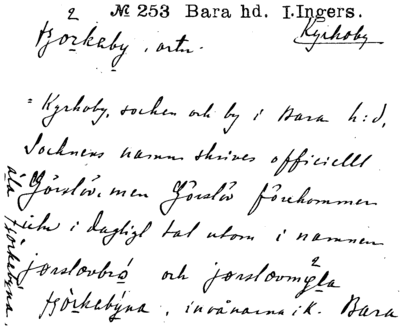 № 253 Bara hd. I.Ingers.
tjörkeby, ortn.
Kyrkoby
= Kyrkoby, socken och by i Bara h:d,
Socknens namn skrives officiellt
Görslöv, men Görslöv förekommer
icke i dagligt tal utom i namnen
jorslovbro och jorslovmylla
tjörkebýna, invånarna i K. Bara
tjörkebýna.